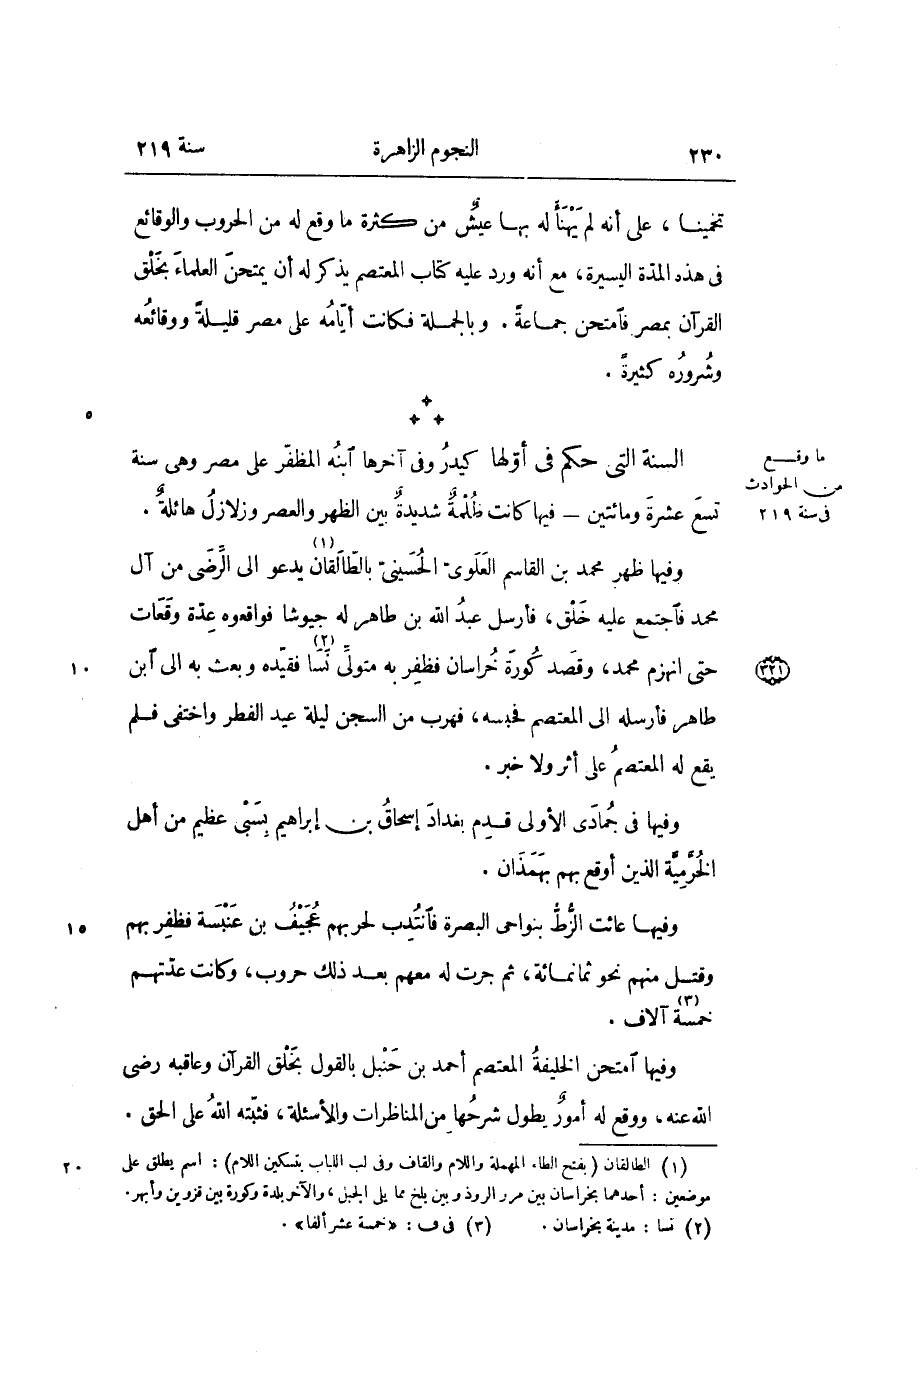 ٢٣٠ النجوم الزاهرة سنة ٢١٩
تخمينا ، على أنه لم يَهْنَأْ له بها عيشٌ من كثرة ما وقع له من الحروب والوقائع
فى هذه المدّة اليسيرة، مع أنه ورد عليه كتاب المعتصم يذكر له أن يمتحنَ العلماءَ بخَلْق
القرآن بمصر فآمتحن جماعةً . وبالجملة فكانت أيّامُه على مصر قليلةً ووقائعُه
وشُرورُه كثيرةً .
٥
ما وقع
من الحوادث
فى سنة ٢١٩
السنة التى حكم فى أوّلها كيدرُ وفى آخرها آبنُه المظفّر على مصر وهى سنة
تسعَ عشرةَ ومائتين — فيها كانت ظُلْمةٌ شديدةٌ بين الظهر والعصر وزلازلُ هائلةٌ .
وفيها ظهر محمد بن القاسم العَلَوىّ الحُسَينىّ بالطّالَقان (١) يدعو الى الرِّضَى من آل
محمد فآجتمع عليه خَلْق، فأرسل عبدُ الله بن طاهر له جيوشا فواقعوه عِدّة وقَعَات
حتى انهزم محمد، وقصَد كُورَة خُراسان فظفِر به متولِّى نَسَا (٢) فقيّده وبعث به الى آبن
١٠
٣٢١
طاهر فأرسله الى المعتصم فحبسه، فهرب من السجن ليلة عيد الفطر واختفى فلم
يقع له المعتصمُ على أثر ولا خبر .
وفيها فى جُمادَى الأولى قدِم بغدادَ إسحاقُ بن إبراهيم بسَبْىٍ عظيم من أهل
الخُرَّمِيَّة الذين أوقع بهم بهَمَذَان .
وفيها عاثت الزُّطُّ بنواحى البصرة فآنتُدِب لحربهم عُجَيْفُ بن عَنْبَسَة فظفِر بهم
١٥
وقتل منهم نحو ثمانمائة، ثم جرت له معهم بعد ذلك حروب، وكانت عدّتهم
خمسة (٣) آلاف .
وفيها آمتحن الخليفةُ المعتصم أحمد بن حَنْبل بالقول بخَلْق القرآن وعاقبه رضى
الله عنه، ووقع له أمورٌ يطول شرحُها من المناظرات والأسئلة، فثبّته اللهُ على الحق .
(١) الطالقان (بفتح الطاء المهملة واللام والقاف وفى لب اللباب بتسكين اللام) : اسم يطلق على
٢٠
موضعين : أحدهما بخراسان بين مرو الروذ وبين بلخ مما يلى الجبل، والآخر بلدة وكورة بين قزوين وأبهر.
(٢) نسا : مدينة بخراسان . (٣) فى ف : «خمسة عشر ألفا» .